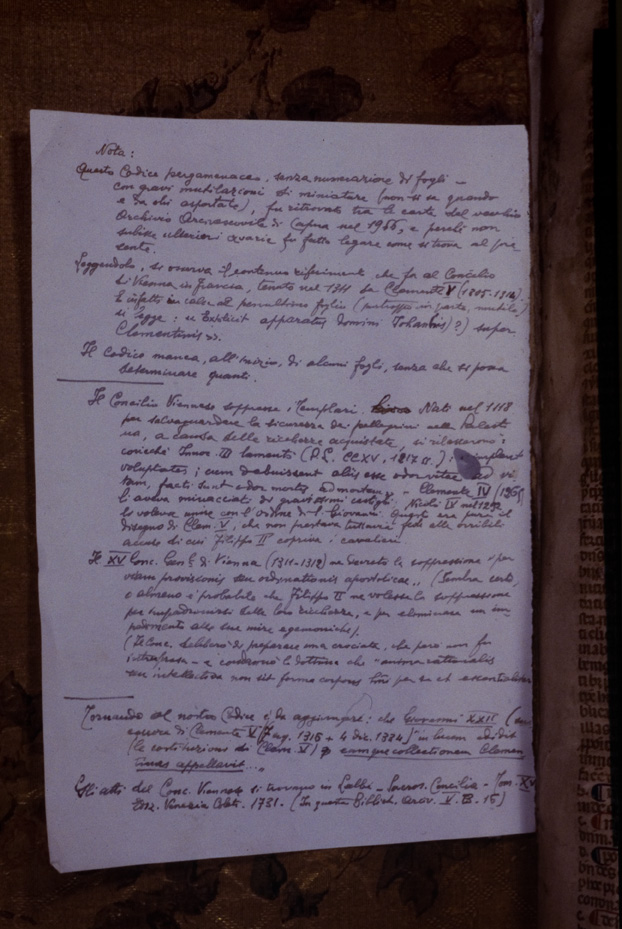 Nota:
Questo Codice pergamenaceo, senza numerazione di fogli -
con gravi mutilazioni di miniature (non si sa quando
e da chi asportate), fu ritrovato tra le carte del vecchio
Archivio Arcivescovile di Capua nel 1966, e perché non
subisse ulteriori avarie fu fatto legare come si trova al pre
sente.
Leggendolo, si osserva il continuo riferimento che fa al Concilio
di Vienna in Francia, tenuto nel 1311 da Clemente V (1305-1314).
E infatti in calce al penultimo foglio (purtroppo in parte, mutilo)
si legge: "Explicit apparatus domini Johannis (?) super
Clementinis".
Il Codice manca, all'inizio, di alcuni fogli, senza che si possa
determinare quanti.
Il Concilio Viennese soppresse i Templari. Nati nel 1118
per salvaguardare la sicurezza dei pellegrini nella Palesti
na, a causa delle ricchezze acquistate, si rilassarono:
cosicché Innoc. III lamentò (P.L. CCXV, 1217 s.): implent
voluptates; cum debuissent aliis esse odor vitae ad vi
tam, facti sunt odor mortis ad mortem - Clemente IV (1265)
li aveva minacciati di gravissimi castighi. Nicolò IV nel 1292
li voleva unire con l'ordine di S. Giovanni. Questo era pure il
disegno di Clem. V, che non prestava tuttavia fede alle orribili
accuse di cui Filippo II copriva i cavalieri.
Il XV Conc. Gen. di Vienna (1311-1312) ne decretò la soppressione "per
viam provisionis seu ordinationis apostolicae" (Sembra certo,
o almeno è probabile che Filippo II ne volesse la soppressione
per impadronirsi delle loro ricchezze, e per eliminare un im-
pedimento alle sue mire egemoniche).
(Il Conc. deliberò di preparare una crociata, che però non fu
intrapresa - e condannò la dottrina che "anima rationalis
seu intellectiva non sit forma corporis humani per se et essentialiter
Tornando al nostro Codice è da aggiungere: che Giovanni XXII
di Clemente V (7 ag. 1316 + 4 dic. 1334) in lucem edidit
(le costituzioni di Clem. V) eamque collectionem Clemen
tinas appellavit....
Gli atti del Conc. Viennese si trovano in Labbè - Sacros. Concilia - Tom. XV
Ediz. Venezia Coleti. 1731. (In questa Bibliot. Arciv. V. B. 15)